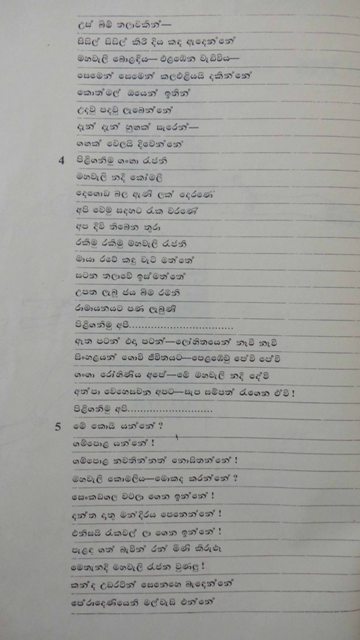 උස් බිම් තලාවකින්—
සිසිල් සිසිල් කිරි දිය කඳ ඇදෙන්නේ
මහවැලි බොළඳිය— එළඹෙන වැඩිවිය—
සෙමෙන් සෙමෙන් කලඑළියයි දකින්නේ
කොත්මල් ඔයෙන් ඉතින්
උදව් පදව් ලැබෙන්නේ
දැන් දැන් හුඟක් සැරෙන්—
ගඟක් වෙලයි දිවෙන්නේ
4 පිළිගනිමු ගංගා රැජනි
මහවැලි නදී කෝමලී
දෙගොඩ බල ඇණි ලක් දෙරණේ
අපි වෙමු සදහට රැක වරණේ
අප දිවි තිබෙන තුරා
රකිමු රකිමු මහවැලි රැජනි
මායා රටේ කඳු වැටි මත්තේ
සටන තලාවේ ඉස්මත්තේ
උපත ලැබූ ජය බිම රමනි
රාමායනයට පණ ලැබුණි
පිළිගනිමු අපි..............................
ඈත පටන් එදා පටන්—ලෝහිතයෙන් නැවී නැවී
සිංහලයන් ගොවි ජීවිතයට—පෙළඹෙව් පේවී පේවී
ගංගා රෝහිණිය අපේ—මේ මහවැලි නදී දේවී
අත්පා වෙහෙසවන අපට—සැප සම්පත් රැගෙන ඒවි !
පිළිගනිමු අපි.........................
5 මේ කොයි යන්නේ ?
ගම්පොළ යන්නේ !
ගම්පොළ නවතින්නත් නොසිතන්නේ !
මහවැලි කොමලිය—මොකද කරන්නේ ?
සෙංකඩගල වටලා ගෙන ඉන්නේ !
දන්ත දාතු මන්දිරය පෙනෙන්නේ !
එනිසයි රැකවල් ලා ගෙන ඉන්නේ !
පැළඳ ගත් බැවින් රන් මිණි කිරුළු
මෙතැනදී මහවැලි රැජන වුණලු !
කන්ද උඩරටින් සෙනෙහෙ බැඳෙන්නේ
පේරාදෙණියෙනි මල්වැසි එන්නේ